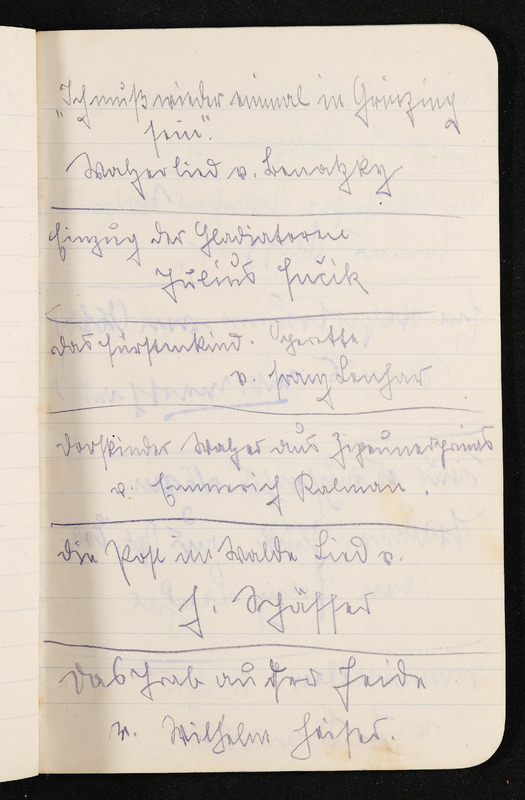 „Ich muß wieder einmal in Grinzing
sein".
Walzerlied v. Benatzky
Einzug der Gladiatoren
Julius Fučik
das Fürstenkind. Operette
v. Franz Lenhar
Dorfkinder Walzer aus Zigeunerprimas
v. Emmerich Kalman.
die Post im Walde Lied v.
H. Schäffer
Das Grab auf der Heide
v. Wilhelm Heiser.